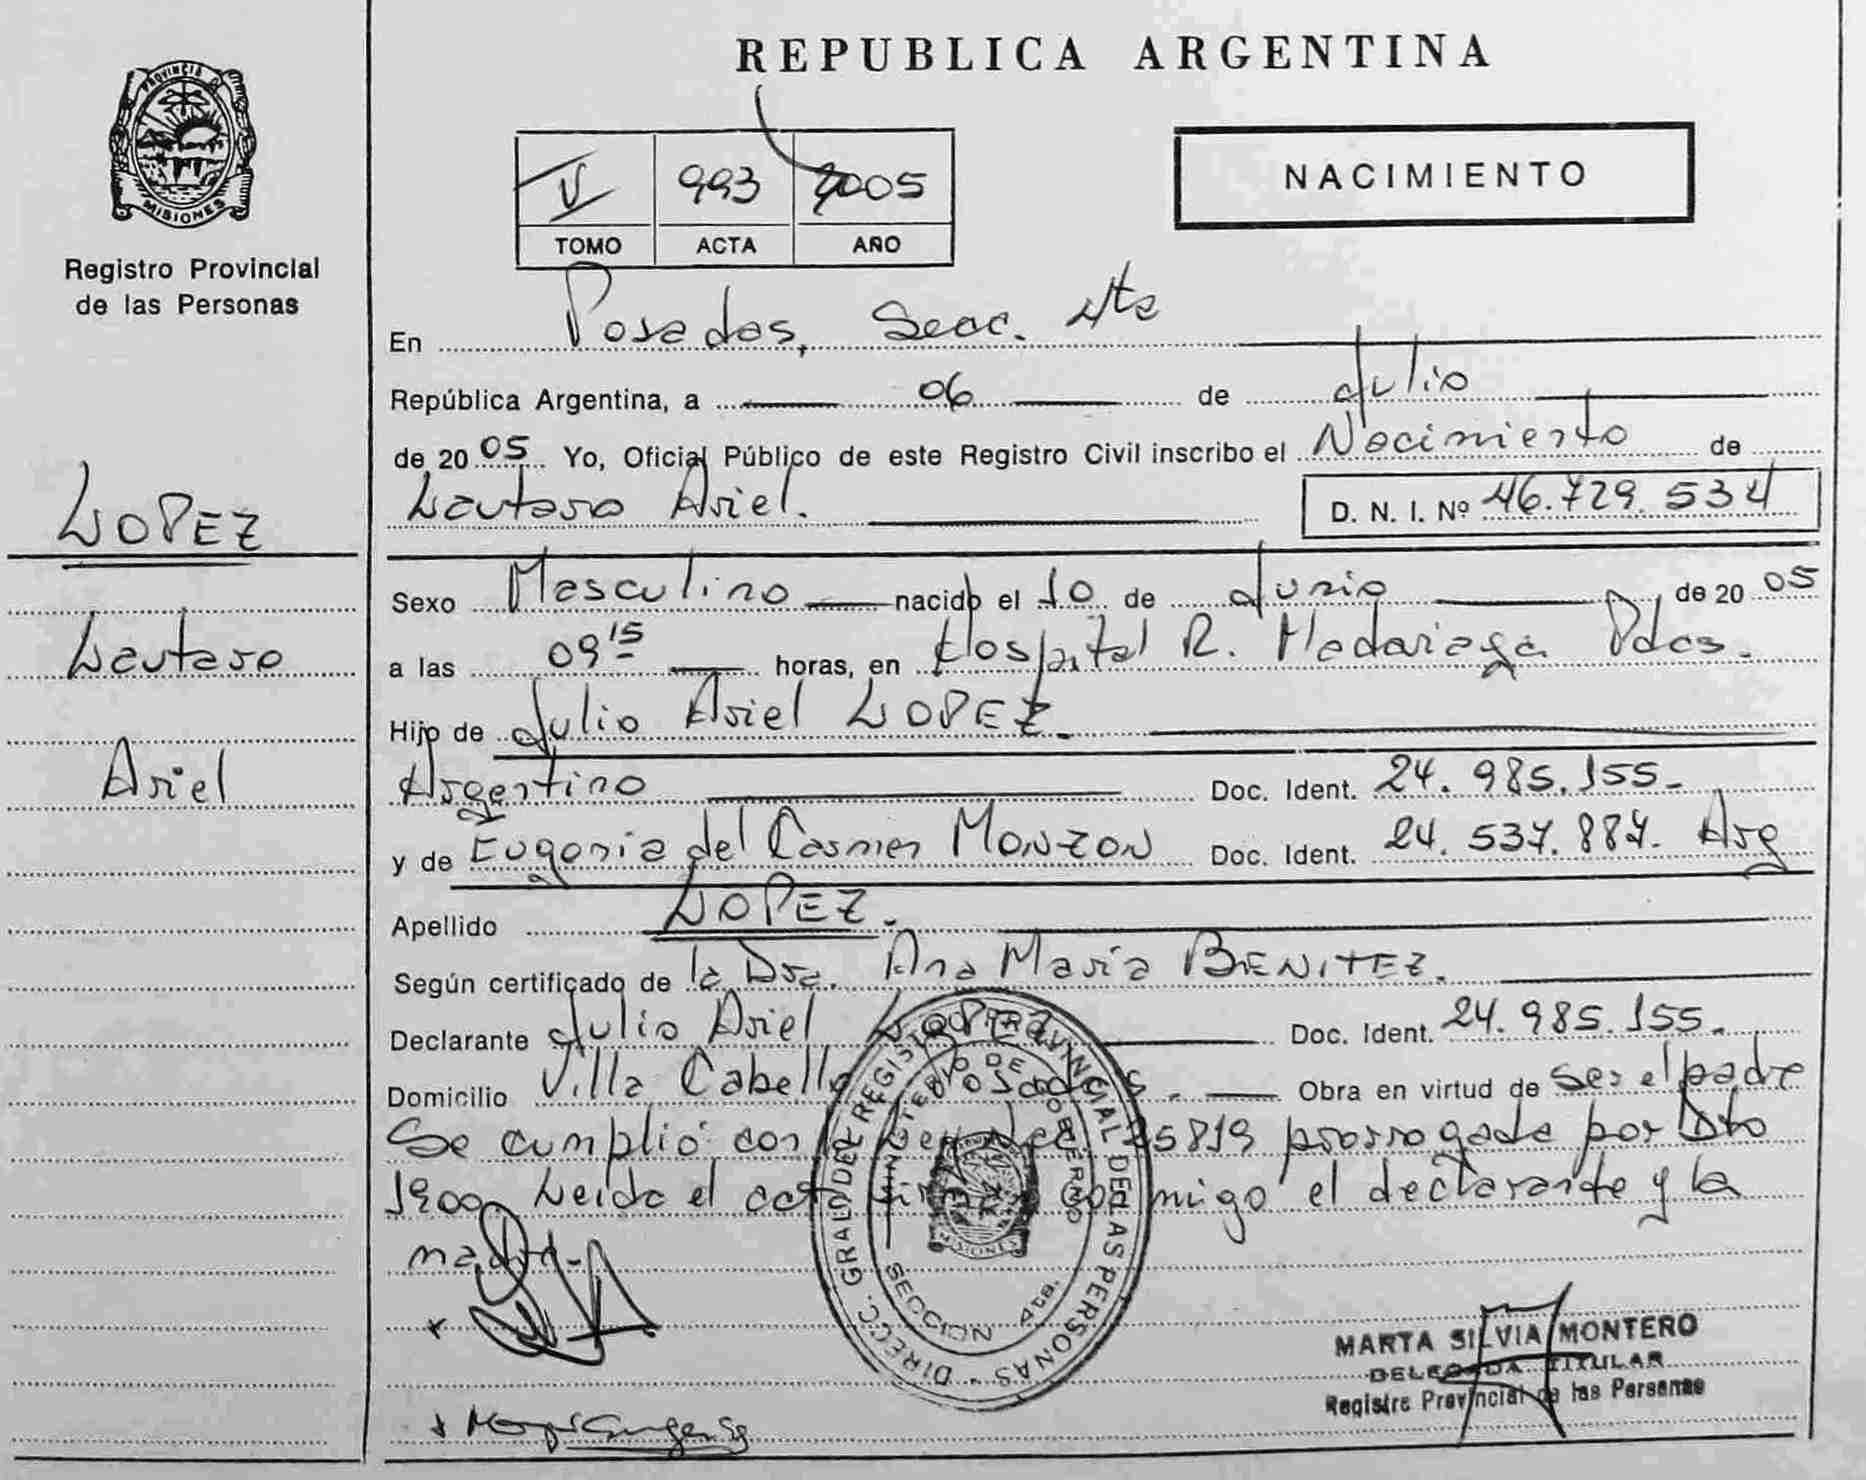 REPUBLICA ARGENTINA
PROVINCIA D
MISIONES
Registro Provincial
de las Personas
LOPEZ
Lautaro
Ariel
V 993 2005
TOMO ACTA AÑO
NACIMIENTO
En Posadas, Secc. 4ta
República Argentina, a 06 de Julio
de 20 05 Yo, Oficial Público de este Registro Civil inscribo el Nacimiento de
Lautaro Ariel. D. N. I. Nº 46.729.534
Sexo Masculino nacido el 10 de Junio de 20 05
a las 09 15 horas, en Hospital R. Madariaga Pdas.
Hijo de Julio Ariel LOPEZ.
Argentino Doc. Ident. 24.985.155.
y de Eugenia del Carmen MONZON Doc. Ident. 24.537.887. Arg
Apellido LOPEZ.
Según certificado de la Dra. Ana María BENITEZ.
Declarante Julio Ariel LOPEZ Doc. Ident. 24.985.155.
Domicilio Villa Cabello Posadas. Obra en virtud de ser el padre
Se cumplió con Ley 25819 prorrogada por Dto
1900. Leída el acta firman conmigo el declarante y la
madre.
DIRECC. GRAL. DEL REGISTRO PROVINCIAL DE LAS PERSONAS
MINISTERIO DE GOBIERNO
MISIONES
SECCION 4ta.
MARTA SILVIA MONTERO
DELEGADA TITULAR
Registro Provincial de las Personas